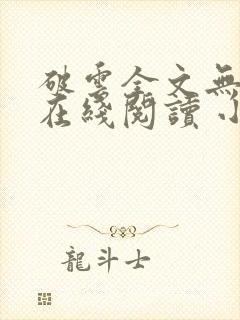 破雲全文無
在綫閱讀 小
龍斗士